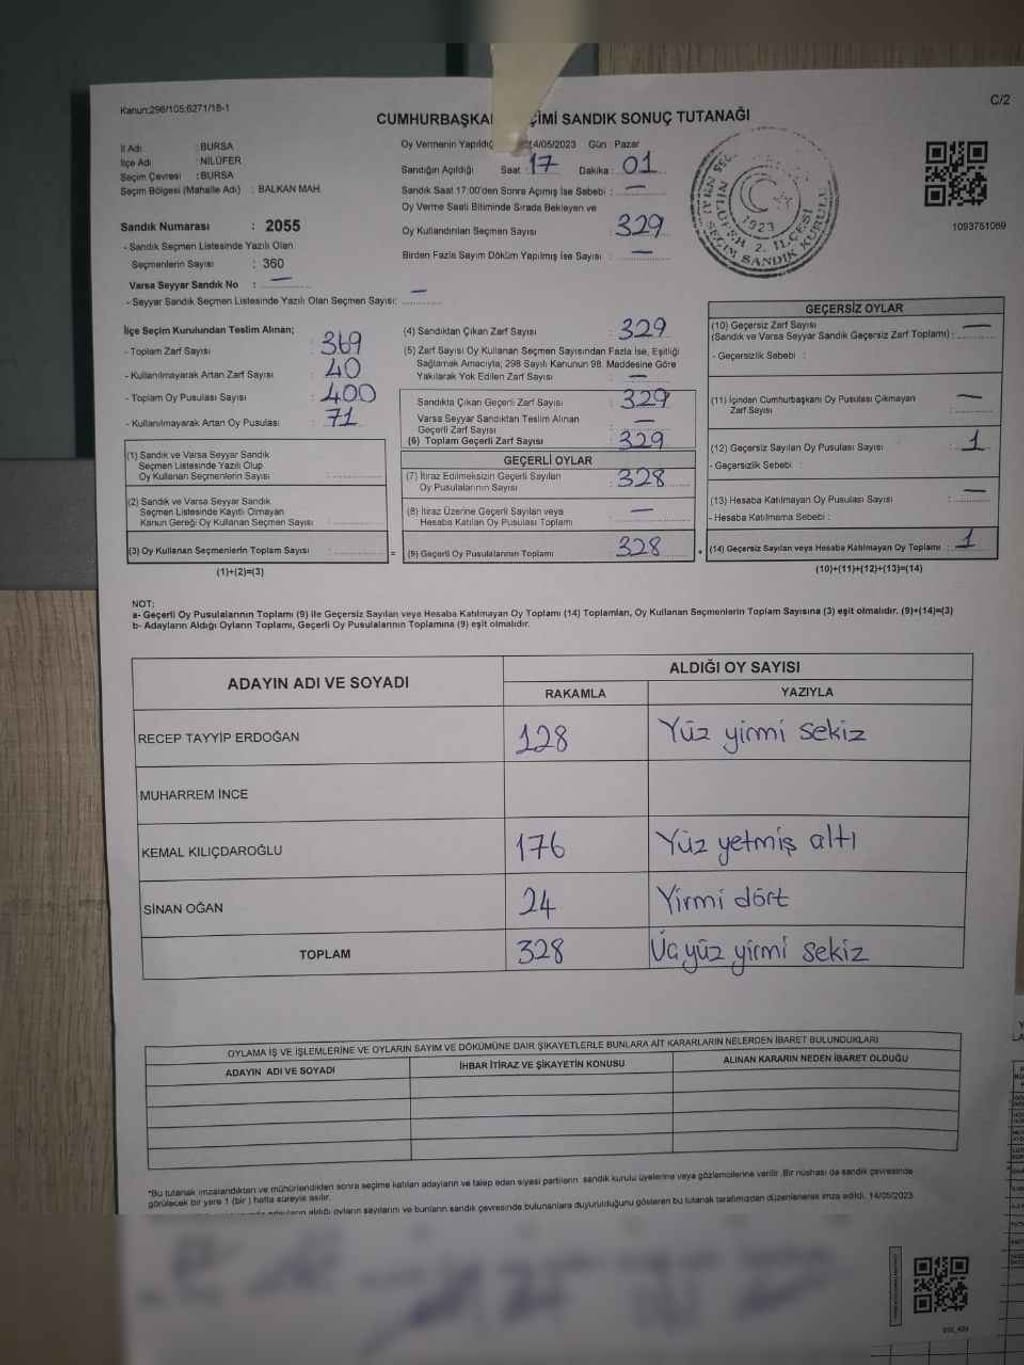 Kanun:298/105:6271/18-1
C/2
CUMHURBAŞKA ÇİMİ SANDIK SONUÇ TUTANAĞI
İl Adı : BURSA
İlçe Adı : NİLÜFER
Seçim Çevresi : BURSA
Seçim Bölgesi (Mahalle Adı) : BALKAN MAH.
Sandık Numarası : 2055
- Sandık Seçmen Listesinde Yazılı Olan
Seçmenlerin Sayısı : 360
Varsa Seyyar Sandık No : —
- Seyyar Sandık Seçmen Listesinde Yazılı Olan Seçmen Sayısı: —
Oy Vermenin Yapıldığ 14/05/2023 Gün : Pazar
Sandığın Açıldığı Saat : 17 Dakika : 01
Sandık Saat 17:00'den Sonra Açımış İse Sebebi : —
Oy Verme Saati Bitiminde Sırada Bekleyen ve
Oy Kullandırılan Seçmen Sayısı : 329
Birden Fazla Sayım Döküm Yapılmış İse Sayısı : —
1923
NİLÜFER 2. İLÇESİ
SEÇİM SANDIK KURULU
1093751069
İlçe Seçim Kurulundan Teslim Alınan;
- Toplam Zarf Sayısı : 369
- Kullanılmayarak Artan Zarf Sayısı : 40
- Toplam Oy Pusulası Sayısı : 400
- Kullanılmayarak Artan Oy Pusulası : 71
(1) Sandık ve Varsa Seyyar Sandık
Seçmen Listesinde Yazılı Olup
Oy Kullanan Seçmenlerin Sayısı :
(2) Sandık ve Varsa Seyyar Sandık
Seçmen Listesinde Kayıtlı Olmayan
Kanun Gereği Oy Kullanan Seçmen Sayısı :
(3) Oy Kullanan Seçmenlerin Toplam Sayısı :
(1)+(2)=(3)
(4) Sandıktan Çıkan Zarf Sayısı : 329
(5) Zarf Sayısı Oy Kullanan Seçmen Sayısından Fazla İse, Eşitliği
Sağlamak Amacıyla; 298 Sayılı Kanunun 98. Maddesine Göre
Yakılarak Yok Edilen Zarf Sayısı : —
Sandıkta Çıkan Geçerli Zarf Sayısı : 329
Varsa Seyyar Sandıktan Teslim Alınan
Geçerli Zarf Sayısı : —
(6) Toplam Geçerli Zarf Sayısı : 329
GEÇERLİ OYLAR
(7) İtiraz Edilmeksizin Geçerli Sayılan
Oy Pusulalarının Sayısı : 328
(8) İtiraz Üzerine Geçerli Sayılan veya
Hesaba Katılan Oy Pusulası Toplamı : —
= (9) Geçerli Oy Pusulalarının Toplamı : 328
GEÇERSİZ OYLAR
(10) Geçersiz Zarf Sayısı
(Sandık ve Varsa Seyyar Sandık Geçersiz Zarf Toplamı) : —
- Geçersizlik Sebebi :
(11) İçinden Cumhurbaşkanı Oy Pusulası Çıkmayan
Zarf Sayısı : —
(12) Geçersiz Sayılan Oy Pusulası Sayısı : 1
- Geçersizlik Sebebi :
(13) Hesaba Katılmayan Oy Pusulası Sayısı : —
- Hesaba Katılmama Sebebi :
+ (14) Geçersiz Sayılan veya Hesaba Katılmayan Oy Toplamı : 1
(10)+(11)+(12)+(13)=(14)
NOT:
a- Geçerli Oy Pusulalarının Toplamı (9) ile Geçersiz Sayılan veya Hesaba Katılmayan Oy Toplamı (14) Toplamları, Oy Kullanan Seçmenlerin Toplam Sayısına (3) eşit olmalıdır. (9)+(14)=(3)
b- Adayların Aldığı Oyların Toplamı, Geçerli Oy Pusulalarının Toplamına (9) eşit olmalıdır.
ADAYIN ADI VE SOYADI
ALDIĞI OY SAYISI
RAKAMLA YAZIYLA
RECEP TAYYİP ERDOĞAN 128 Yüz yirmi sekiz
MUHARREM İNCE
KEMAL KILIÇDAROĞLU 176 Yüz yetmiş altı
SİNAN OĞAN 24 Yirmi dört
TOPLAM 328 Üçyüz yirmi sekiz
OYLAMA İŞ VE İŞLEMLERİNE VE OYLARIN SAYIM VE DÖKÜMÜNE DAİR ŞİKAYETLERLE BUNLARA AİT KARARLARIN NELERDEN İBARET BULUNDUKLARI
ADAYIN ADI VE SOYADI İHBAR İTİRAZ VE ŞİKAYETİN KONUSU ALINAN KARARIN NEDEN İBARET OLDUĞU
*Bu tutanak imzalandıktan ve mühürlendikten sonra seçime katılan adayların ve talep eden siyasi partilerin sandık kurulu üyelerine veya gözlemcilerine verilir. Bir nüshası da sandık çevresinde
görülecek bir yere 1 (bir) hafta süreyle asılır.
aldığı oyların sayılarını ve bunların sandık çevresinde bulunanlara duyurulduğunu gösteren bu tutanak tarafımızdan düzenlenerek imza edildi. 14/05/2023